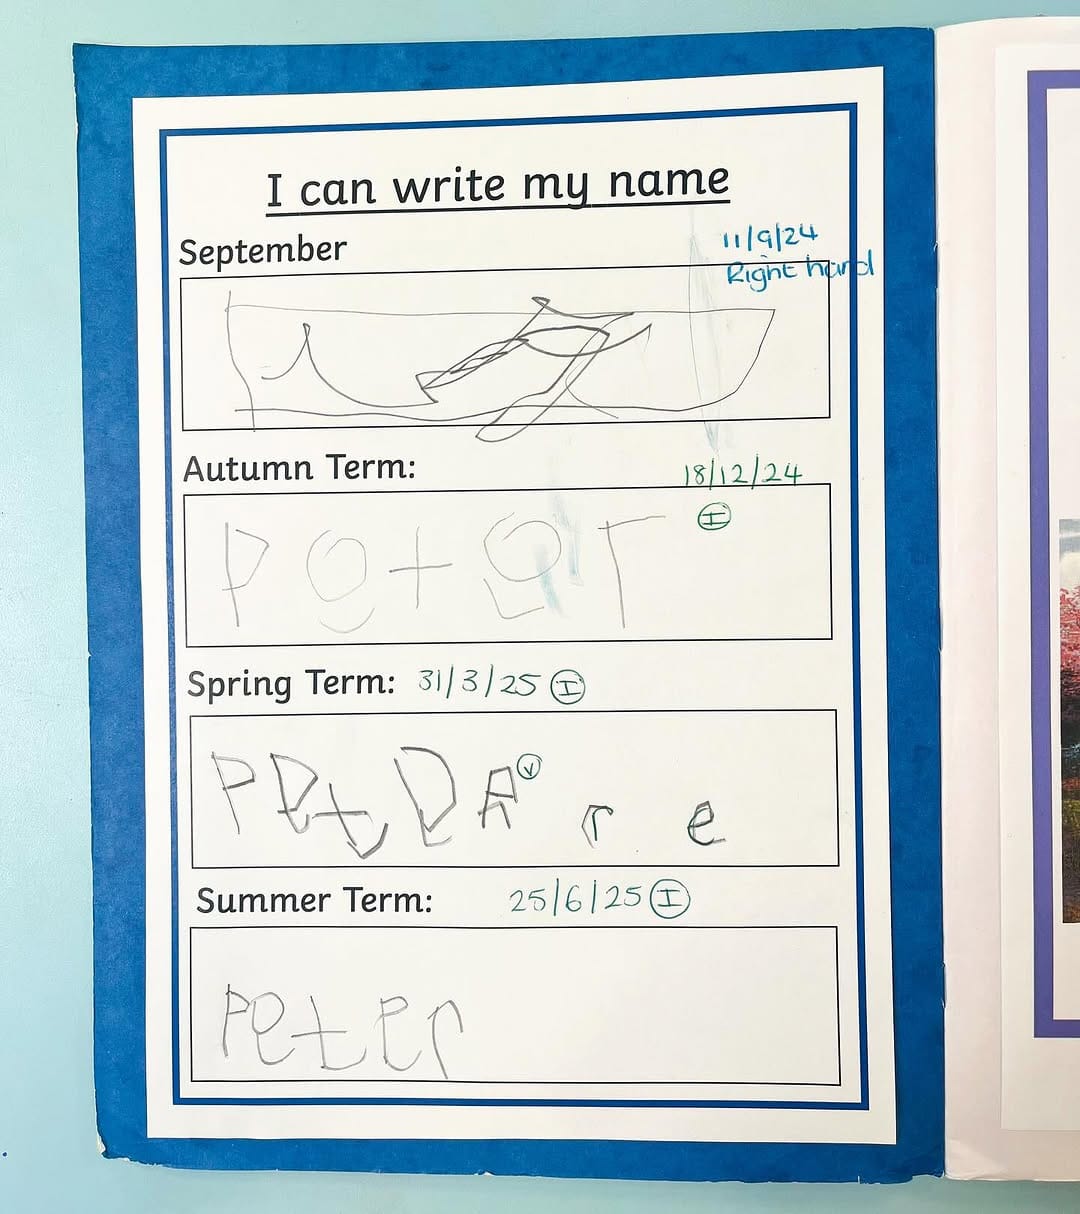 I can write my name
September
11/9/24
Right hand
Autumn Term:
18/12/24
I
PeteT
Spring Term: 31/3/25 I
PEtDA V r e
Summer Term: 25/6/25 I
Peter